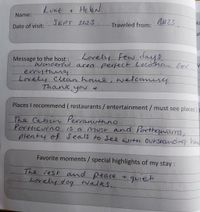 Name: Luke + Helen
Date of visit: Sept 2023 Traveled from:
Message to the host: Lovely few days
wonderful area perfect location for
everything
Lovely Clean house, welcoming
Thank you
Places I recommend ( restaurants / entertainment / must see places
The Cabin Perranuthno
Porthcurno is a must and Porthgwarra,
plenty of Seals to see with outstanding
Favorite moments / special highlights of my stay :
The rest and peace + quiet
Lovely day walks.